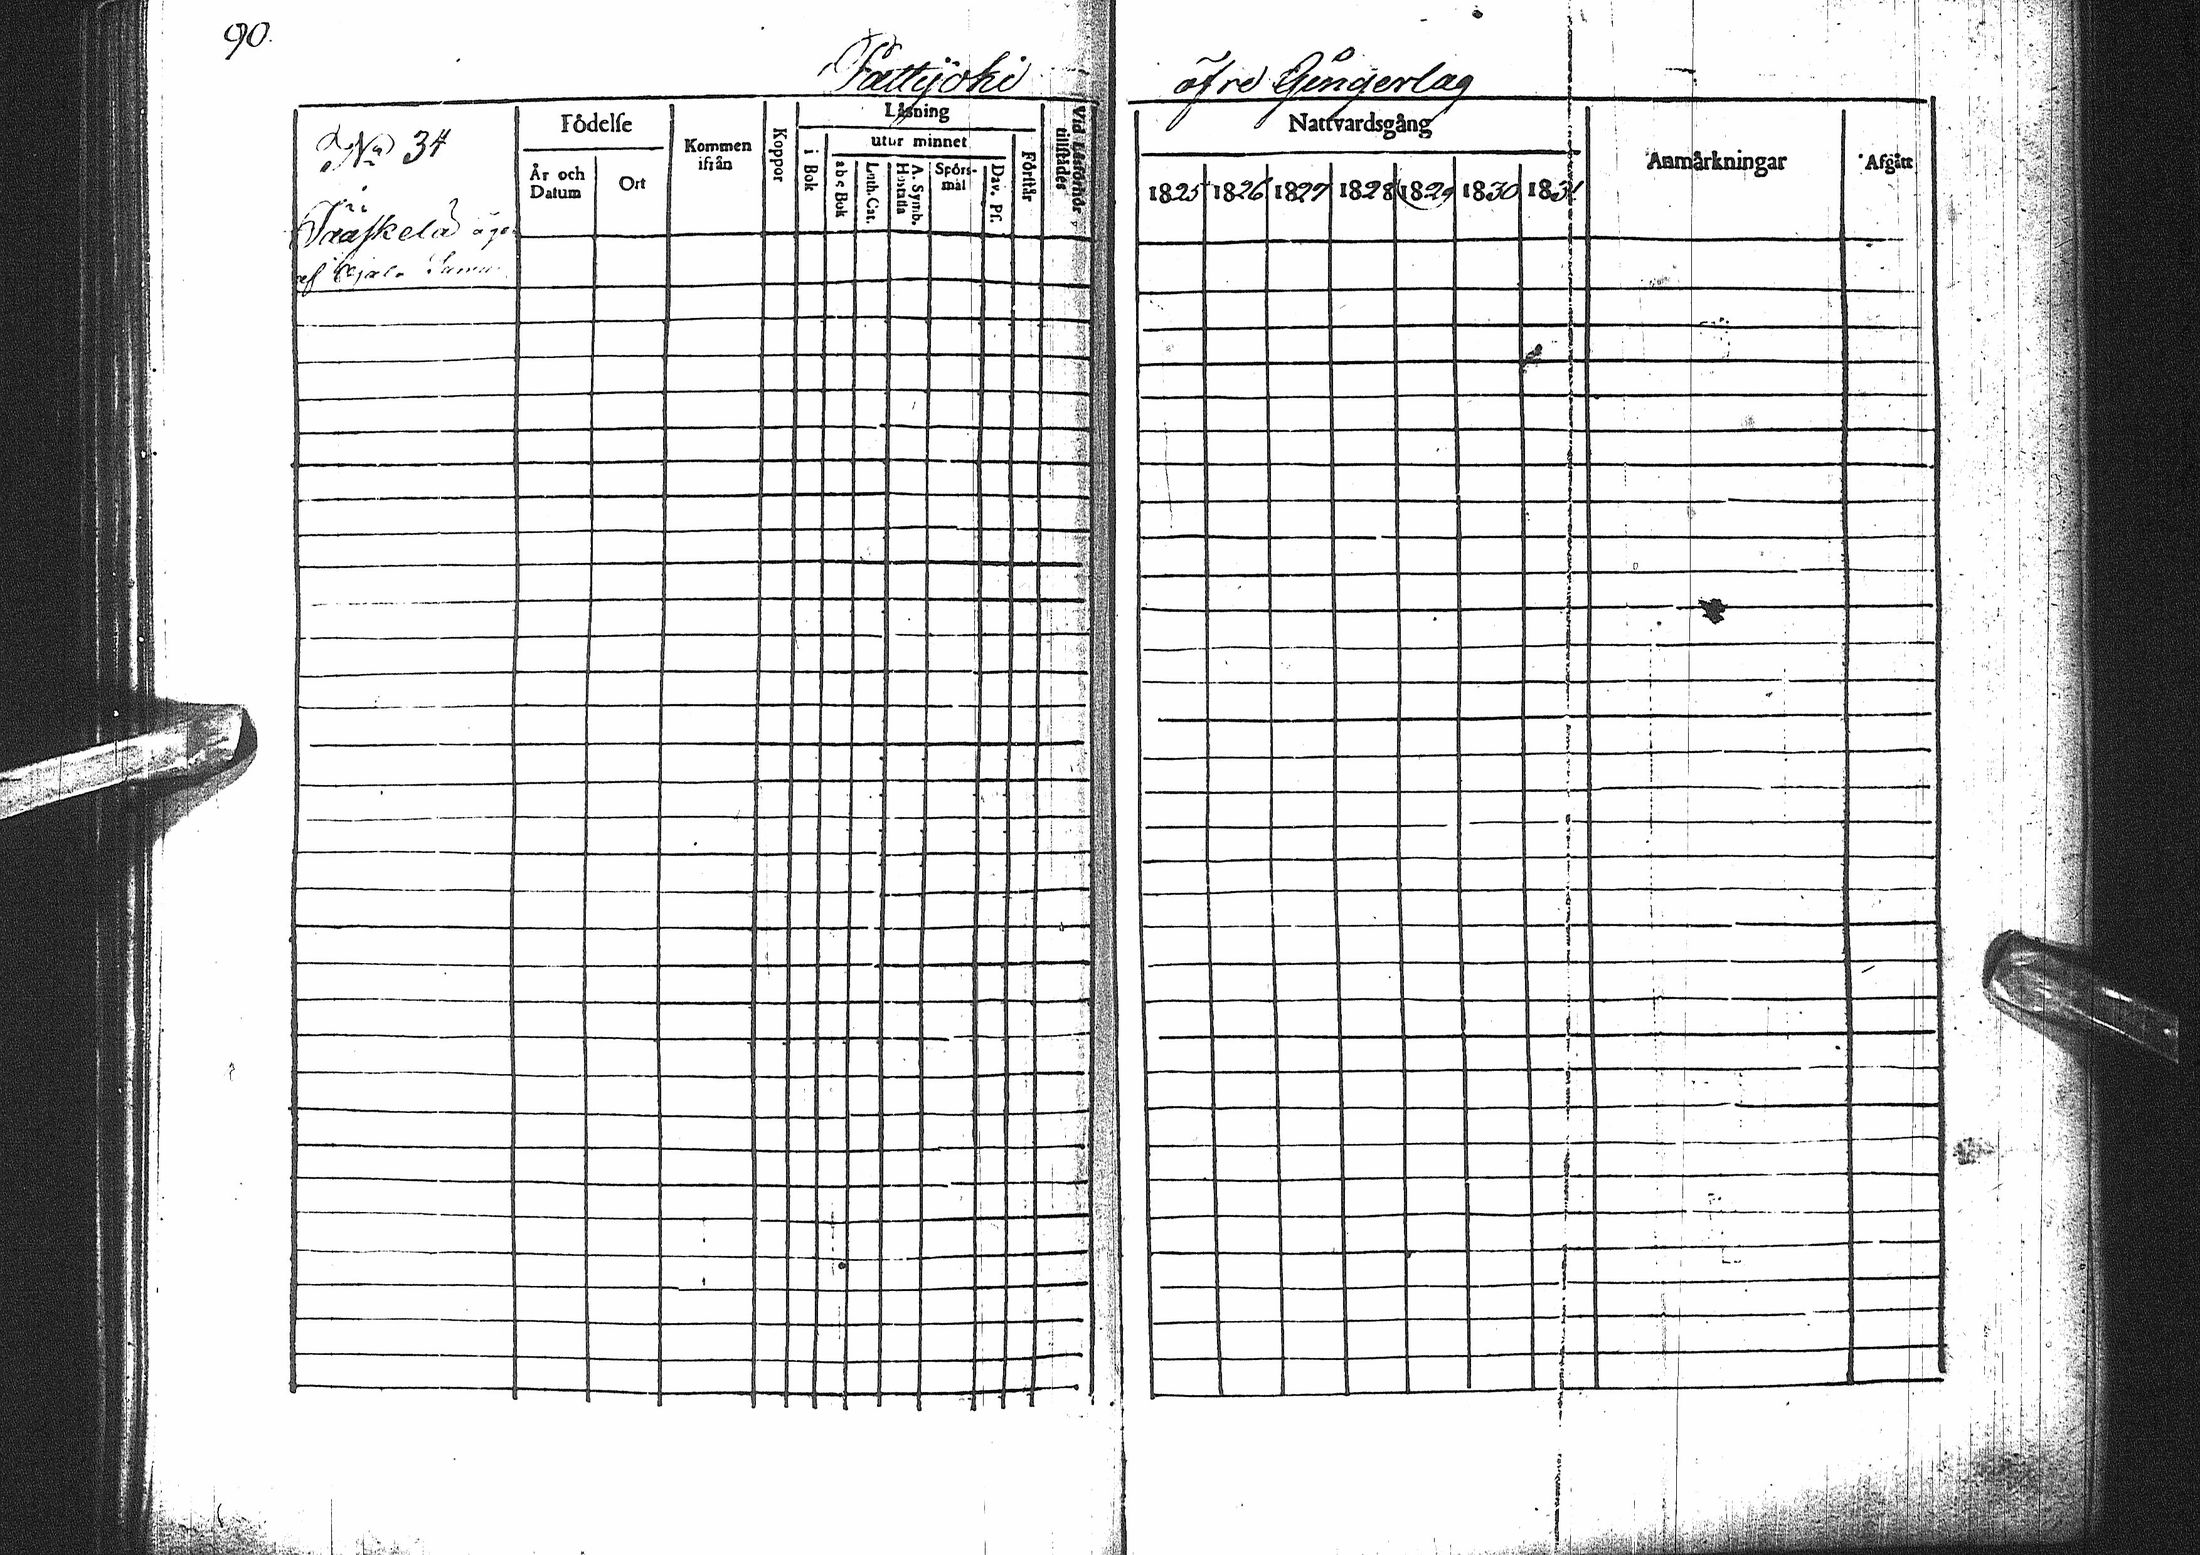 90.
Pattijoki
öfre Gångerlag
No 34
Födelse
År och
Datum
Ort
Kommen
ifrån
Koppor
Läsning
utur minnet
i Bok
abc Bok
Luth. Cat.
A. Symb.
Hustafla
Spörs-
mål
Dav. Pf.
Förstår
Vid Läsförhör
tillstädes
Nattvardsgång
1825 1826 1827 1828 1829 1830 1831
Anmärkningar
Afgått
af